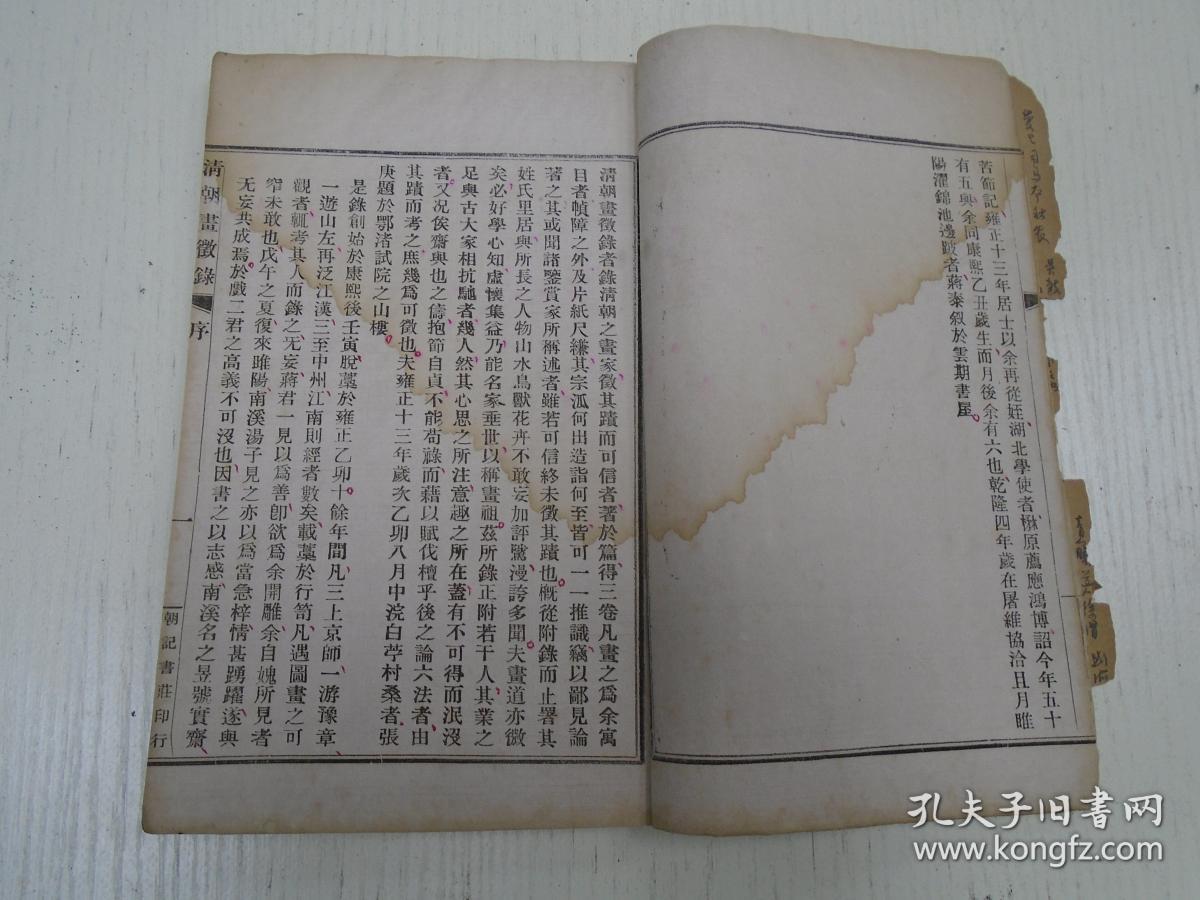 苦節記雍正十三年居士以余再從姪湖北學使者楙原薦應鴻博詔今年五十
有五與余同康熙乙丑歲生而月後余有六也乾隆四年歲在屠維協洽且月睢
陽濯錦池邊跛者蔣泰叙於雲期書屋
清朝畫徵錄者錄清朝之畫家徵其蹟而可信者著於篇得三卷凡畫之爲余寓
目者幀障之外及片紙尺縑其宗派何出造詣何至皆可一一推識竊以鄙見論
著之其或聞諸鑒賞家所稱述者雖若可信終未徵其蹟也槪從附錄而止署其
姓氏里居與所長之人物山水鳥獸花卉不敢妄加評騭漫誇多聞夫畫道亦微
矣必好學心知虛懷集益乃能名家垂世以稱畫祖茲所錄正附若干人其業之
足與古大家相抗馳者幾人然其心思之所注意趣之所在蓋有不可得而泯沒
者又况俟齋與也之儔抱節自貞不能苟祿而藉以賦伐檀乎後之論六法者由
其蹟而考之庶幾爲可徵也夫雍正十三年歲次乙卯八月中浣白苧村桑者張
庚題於鄂渚試院之山樓
是錄創始於康熙後壬寅脫藁於雍正乙卯十餘年間凡三上京師一游豫章
一遊山左再泛江漢三至中州江南則經者數矣載藁於行笥凡遇圖畫之可
觀者輒考其人而錄之无妄蔣君一見以爲善卽欲爲余開雕余自媿所見者
窄未敢也戊午之夏復來睢陽南溪湯子見之亦以爲當急梓情甚踴躍遂與
无妄共成焉於戲二君之高義不可沒也因書之以志感南溪名之昱號實齋
清朝畫徵錄
序
一
朝記書莊印行
孔夫子旧书网
www.kongfz.com